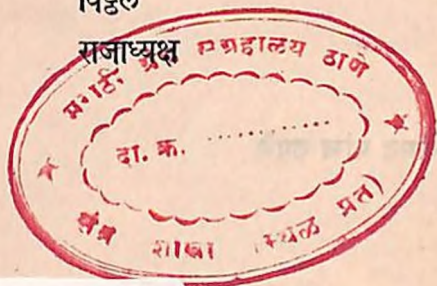 विठ्ठल
राजाध्यक्ष
मराठी ग्रंथ संग्रहालय ठाणे
दा. क्र. ..............
शाखा (स्थळ प्रत)